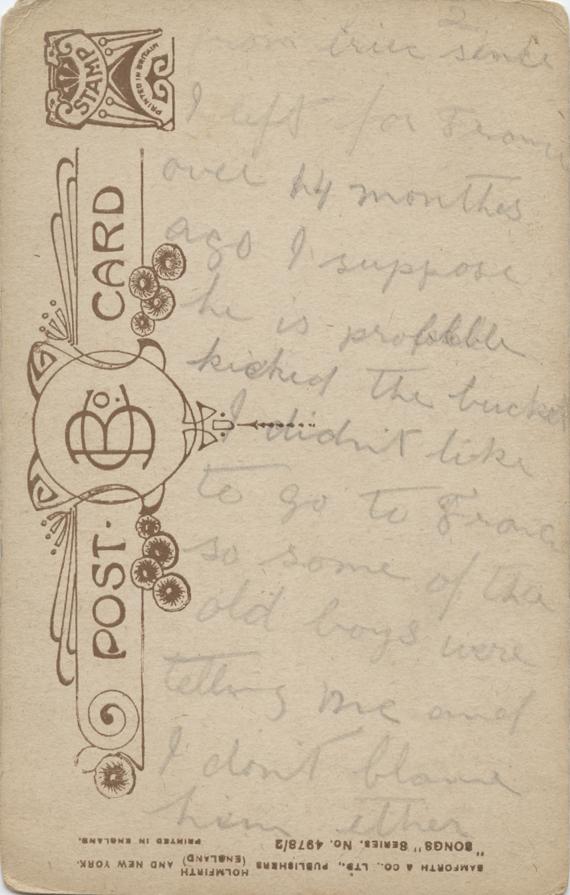 2
from Eric since
I left for France
over 14 months
ago I suppose
he is probbble
kicked the bucket
I didn't like
to go to France
so some of the
old boys were
telling me and
I don't blame
him ether
STAMP
PRINTED IN BRITAIN
POST · CARD
B & Co.
BAMFORTH & CO., LTD., PUBLISHERS HOLMFIRTH (ENGLAND) AND NEW YORK.
"SONGS" SERIES. No. 4978/2 PRINTED IN ENGLAND.